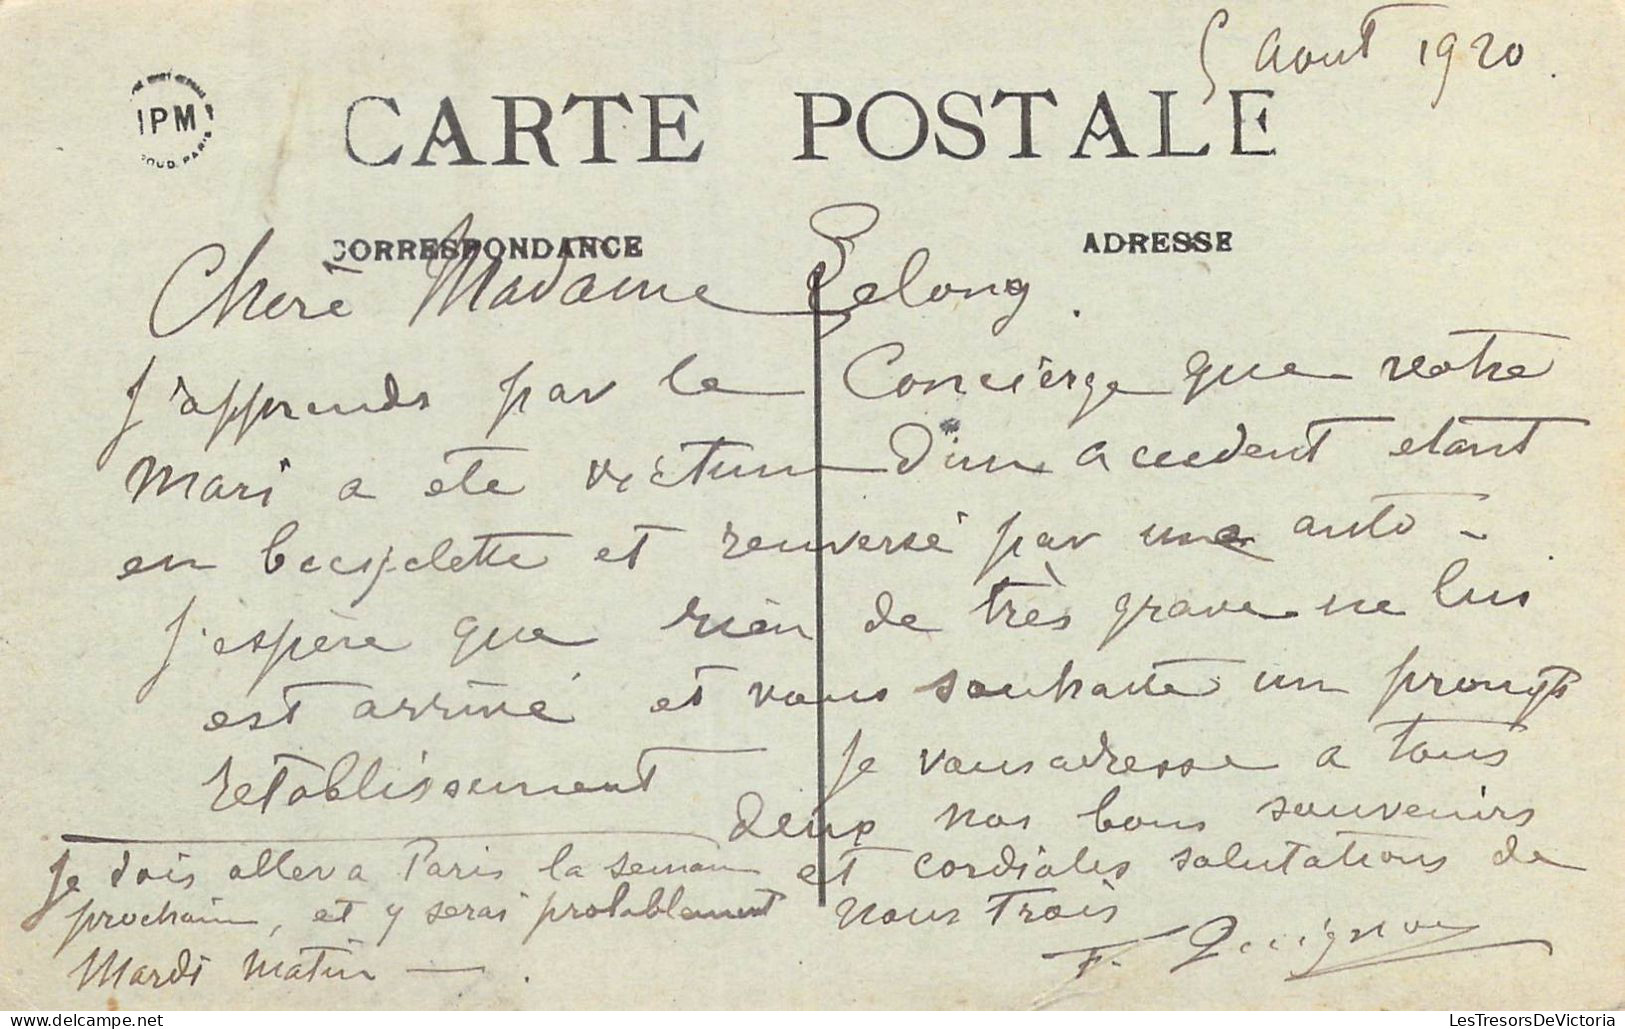 5 Aout 1920.
IPM
CARTE POSTALE
CORRESPONDANCE
ADRESSE
Chere Madame Lelong.
J'apprends par le Concierge que votre
Mari a ete victime d'un accident etant
en bicyclette et renversé par une auto -
J'espère que rien de très grave ne lui
est arrivé et vous souhaite un prompt
retablissement
Je vous adresse a tous
deux nos bons souvenirs
et cordiales salutations de
nous trois
F. Quignon
Je dois aller a Paris la semaine
prochaine, et y serai probablement
Mardi Matin — .
LesTresorsDeVictoria